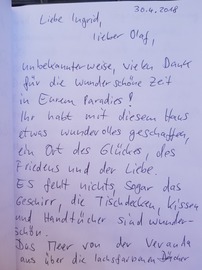 30.4.2018
Liebe Ingrid,
lieber Olaf,
unbekannterweise, vielen Dank
für die wunderschöne Zeit
in Eurem Paradies!
Ihr habt mit diesem Haus
etwas wundervolles geschaffen,
ein Ort des Glückes, des
Friedens und der Liebe.
Es fehlt nichts, sogar das
Geschirr, die Tischdecken, Kissen
und Handtücher sind wunder-
schön.
Das Meer von der Veranda
aus über die lachsfarbenen Dächer